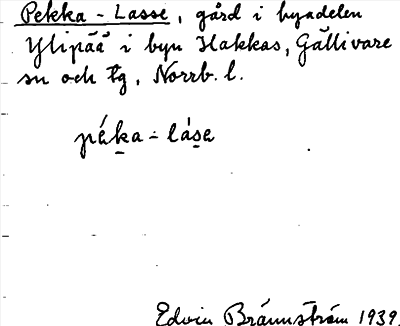 Pekka-Lasse, gård i byadelen
Ylipää i byn Hakkas, Gällivare
sn och tg, Norrb. l.
péka-láse
Edvin Brännström 1939.